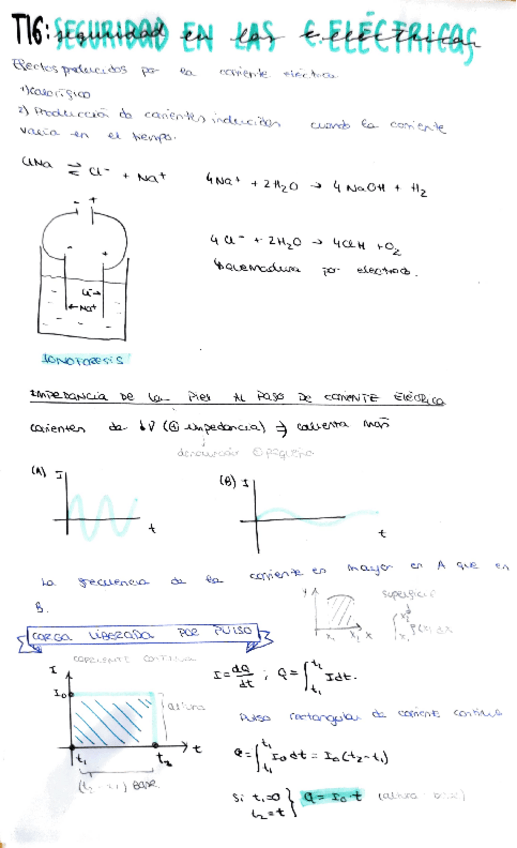 T16: SEGURIDAD EN LAS C.ELÉCTRICAS
seguridad en las c.eléctricas
Efectos producidos por la corriente eléctrica
1) Calorífico
2) Producción de corrientes inducidas cuando la corriente
varía en el tiempo.
ClNa ⇄ Cl⁻ + Na⁺
4Na⁺ + 2H₂O → 4NaOH + H₂
4Cl⁻ + 2H₂O → 4ClH + O₂
↳quemadura por
- +
- +
Cl⁻→
←Na⁺
IONOFORESIS
IMPEDANCIA DE LA PIEL AL PASO DE CORRIENTE ELÉCTRICA
corrientes de (⊕ impedancia) ⇒ calienta más
denominador pequeño
(A) I
t
(B) I
t
La frecuencia de la corriente es mayor en A que en
B.
superficie
Y
x₁ x₂ x
CARGA LIBERADA POR PULSO
CORRIENTE CONTINUA
I
I₀
altura
t₁ t₂ t
(t₂ - t₁) BASE
I = dQ/dt ; Q = ∫ I dt.
Pulso rectangular de corriente continua
Q = ∫ I₀ dt = I₀ (t₂-t₁)
Si t₁=0
t₂=t } Q = I₀·t